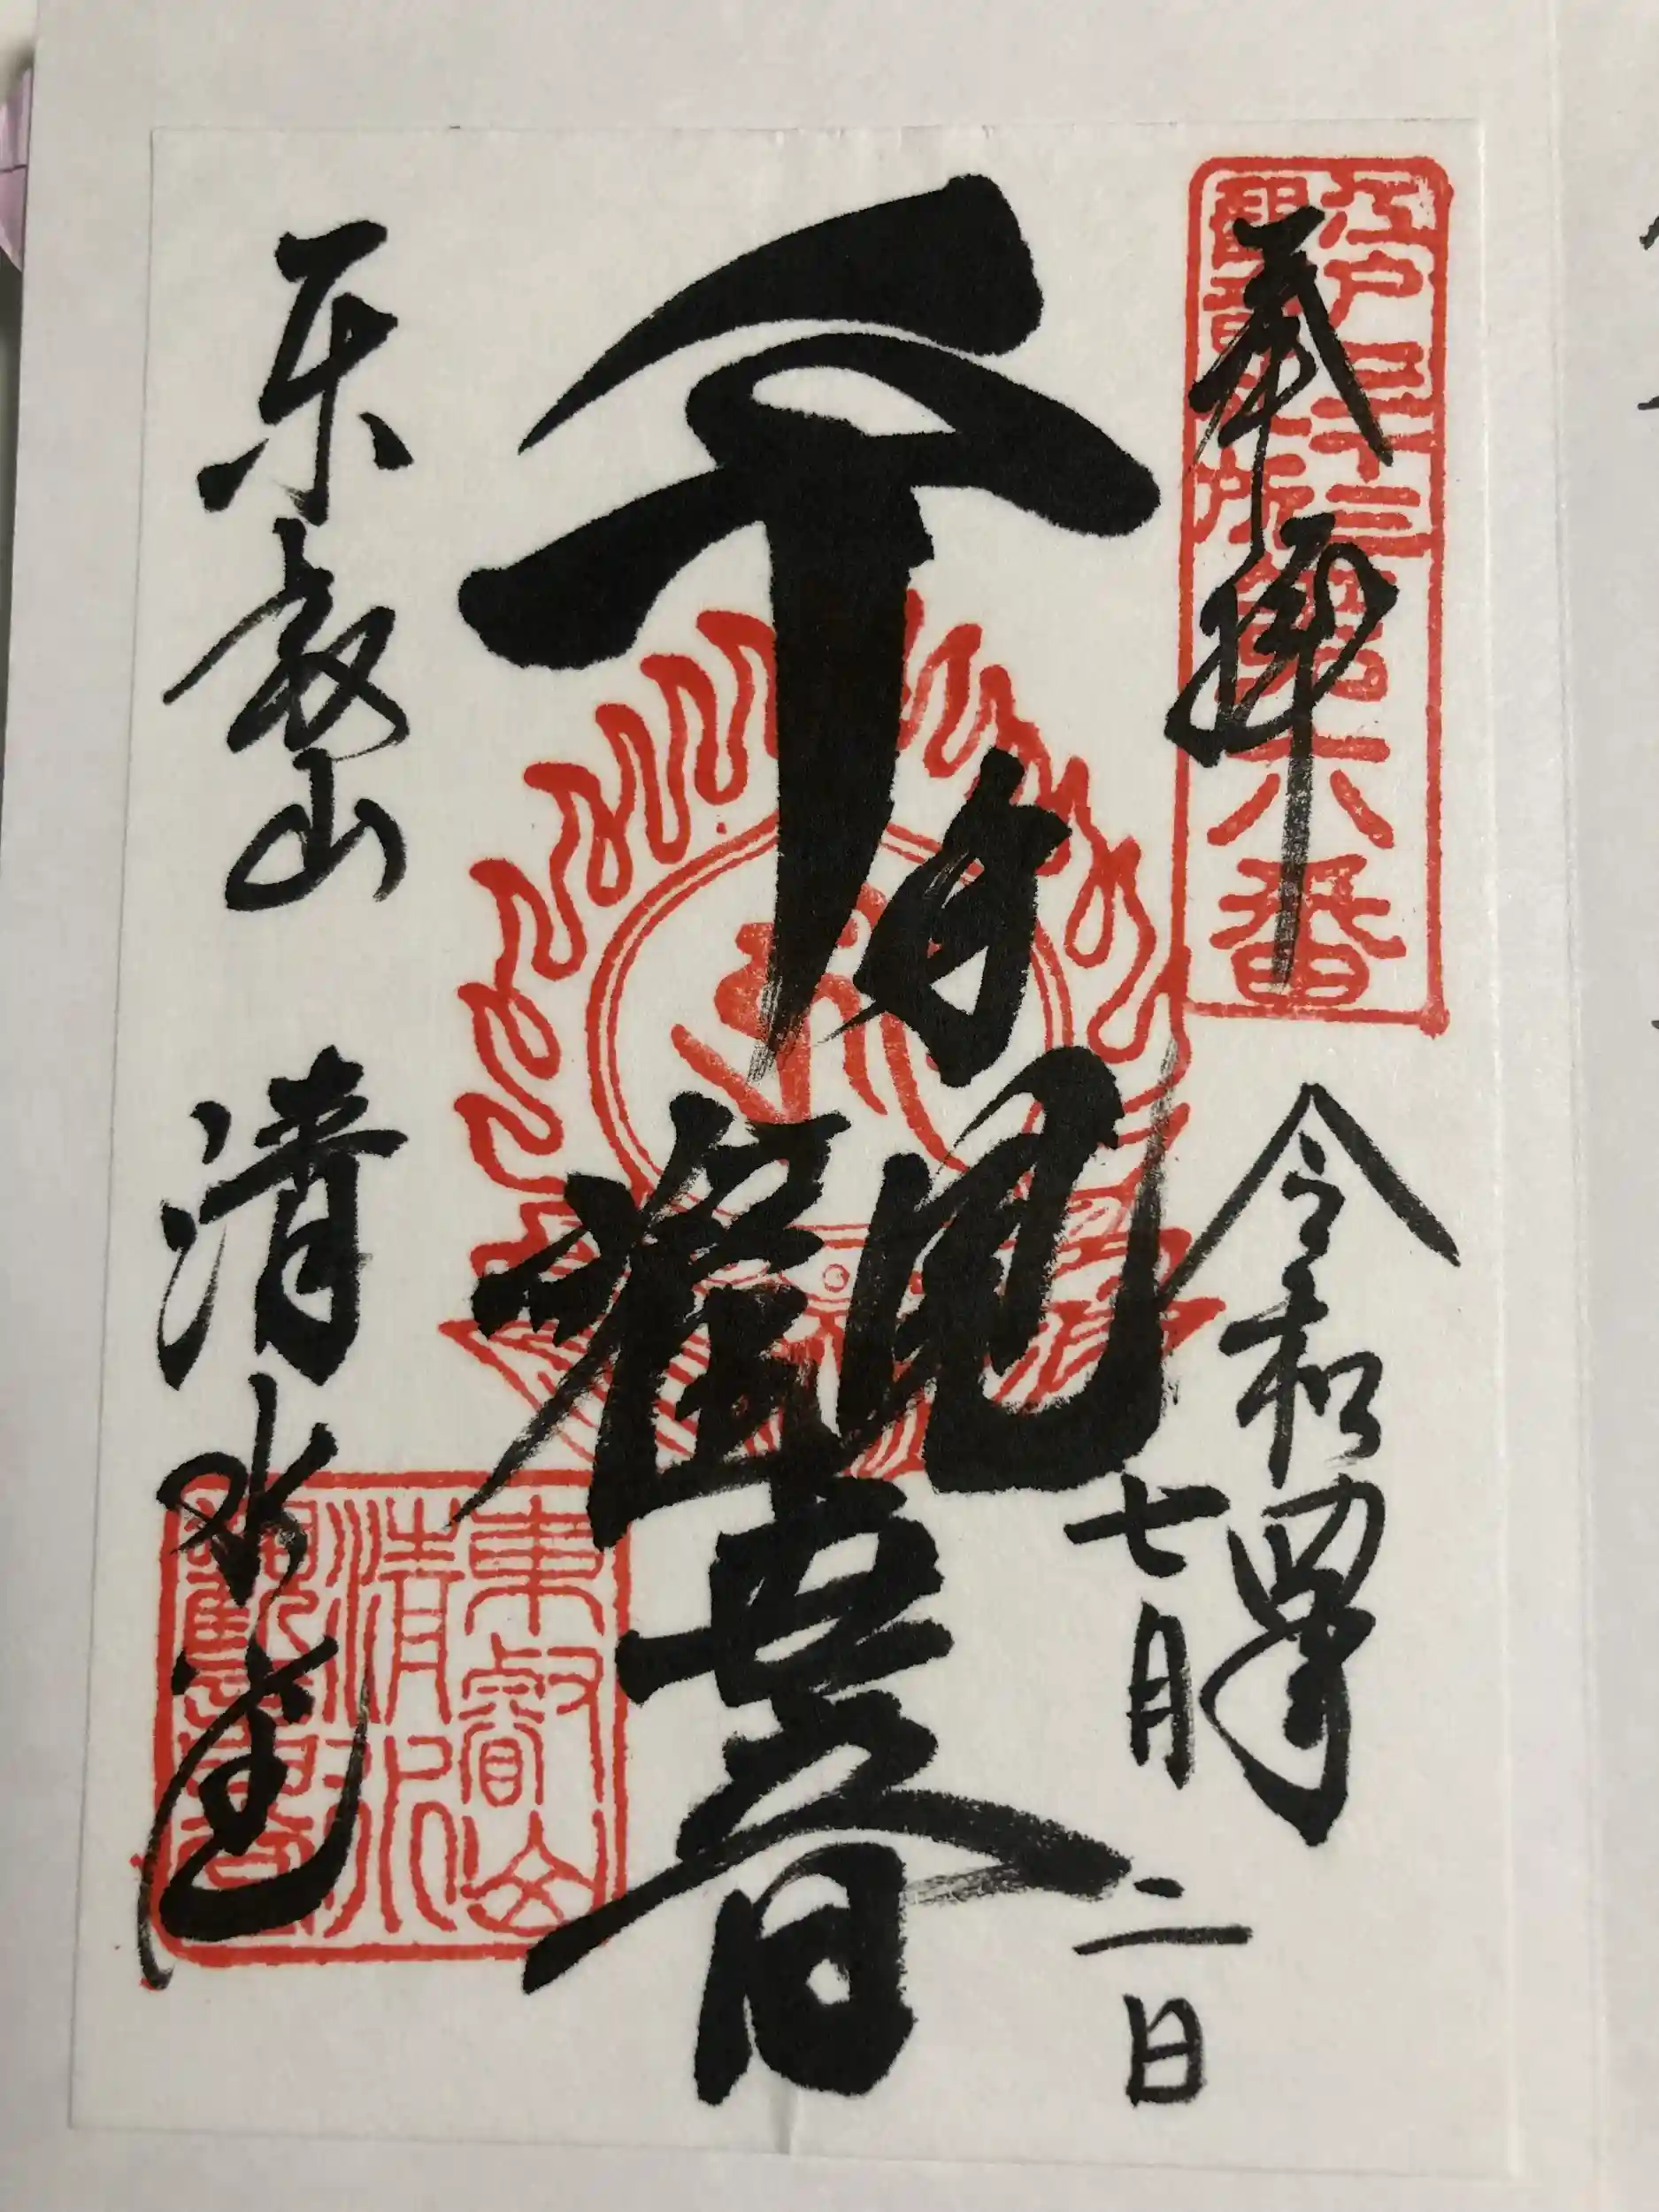 江戸三十三
観音札所
第六番
奉拝
令和四年
七月二日
千手觀世音
東叡山 清水堂
東叡山
清水